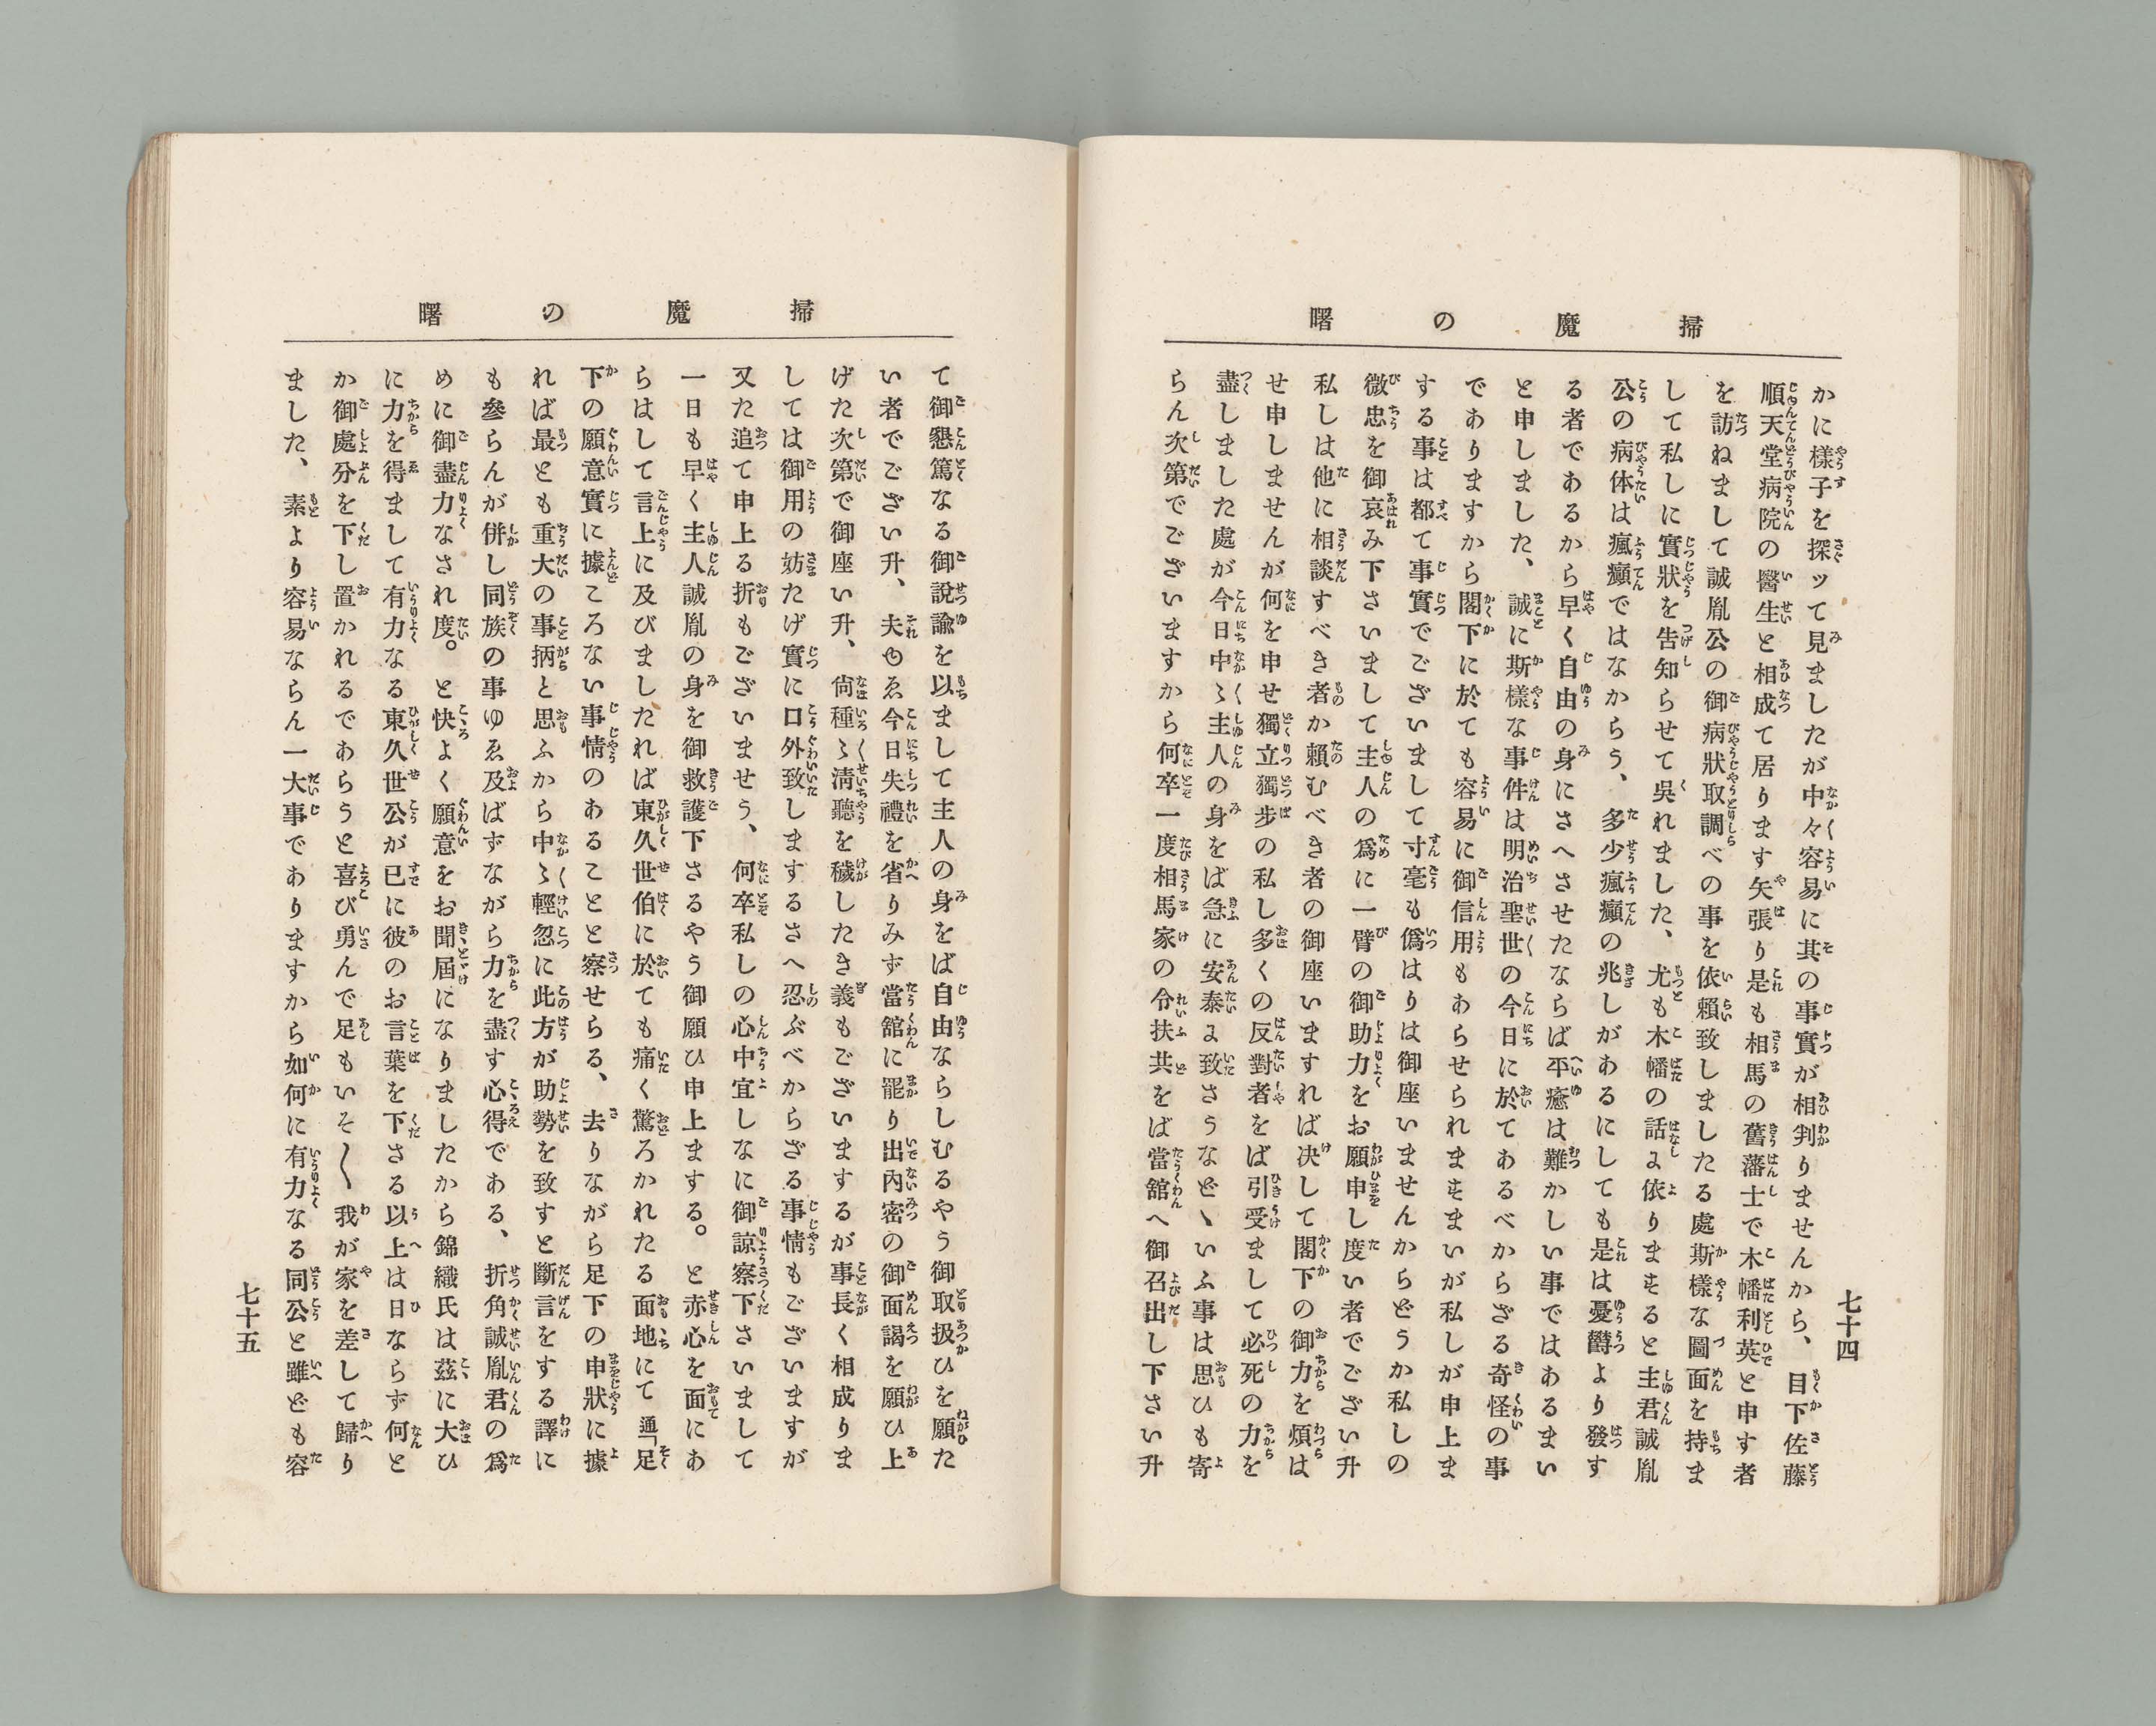 掃魔の曙
七十四
かに樣子を探ッて見ましたが中々容易に其の事實が相判りませんから、目下佐藤
順天堂病院の醫生と相成て居ります矢張り是も相馬の舊藩士で木幡利英と申す者
を訪ねまして誠胤公の御病狀取調べの事を依賴致しましたる處斯樣な圖面を持ま
して私しに實狀を告知らせて吳れました、尤も木幡の話に依りますると主君誠胤
公の病体は瘋癲ではなからう、多少瘋癲の兆しがあるにしても是は憂欝より發す
る者であるから早く自由の身にさへさせたならば平癒は難かしい事ではあるまい
と申しました、誠に斯樣な事件は明治聖世の今日に於てあるべからざる奇怪の事
でありますから閣下に於ても容易に御信用もあらせられますまいが私しが申上ま
する事は都て事實でございまして寸毫も僞はりは御座いませんからどうか私しの
微忠を御哀み下さいまして主人の爲に一臂の御助力をお願申し度い者でござい升
私しは他に相談すべき者か賴むべき者の御座いますれば决して閣下の御力を煩は
せ申しませんが何を申せ獨立獨步の私し多くの反對者をば引受まして必死の力を
盡しました處が今日中〻主人の身をば急に安泰に致さうなどゝいふ事は思ひも寄
らん次第でございますから何卒一度相馬家の令扶共をば當舘へ御召出し下さい升
掃魔の曙
て御懇篤なる御說諭を以まして主人の身をば自由ならしむるやう御取扱ひを願た
い者でござい升、夫ゆゑ今日失禮を省りみず當舘に罷り出內密の御面謁を願ひ上
げた次第で御座い升、尙種〻淸聽を穢したき義もございまするが事長く相成りま
しては御用の妨たげ實に口外致しまするさへ忍ぶべからざる事情もございますが
又た追て申上る折もございませう、何卒私しの心中宜しなに御諒察下さいまして
一日も早く主人誠胤の身を御救護下さるやう御願ひ申上まする。と赤心を面にあ
らはして言上に及びましたれば東久世伯に於ても痛く驚ろかれたる面地にて通「足
下の願意實に據ころない事情のあることと察せらる、去りながら足下の申狀に據
れば最とも重大の事抦と思ふから中〻輕忽に此方が助勢を致すと斷言をする譯に
も參らんが併し同族の事ゆゑ及ばずながら力を盡す心得である、折角誠胤君の爲
めに御盡力なされ度。と快よく願意をお聞屆になりましたから錦織氏は茲に大ひ
に力を得まして有力なる東久世公が已に彼のお言葉を下さる以上は日ならず何と
か御處分を下し置かれるであらうと喜び勇んで足もいそ〳〵我が家を差して歸り
ました、素より容易ならん一大事でありますから如何に有力なる同公と雖ども容
七十五